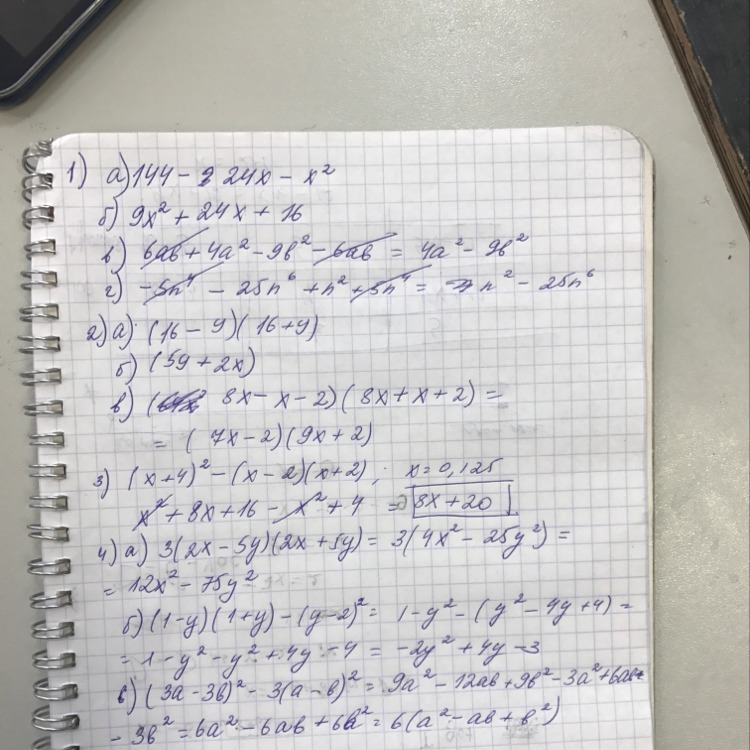 1) а) 144 - 24x - x²
б) 9x² + 24x + 16
в) 6ab + 4a² - 9b² - 6ab = 4a² - 9b²
г) -5n⁴ - 25n⁶ + n² + 5n⁴ = n² - 25n⁶
2) а) (16 - y)(16 + y)
б) (5y + 2x)
в) ( 8x - x - 2)(8x + x + 2) =
= ( 7x - 2)(9x + 2)
3) (x + 4)² - (x - 2)(x + 2); x = 0,125
x² + 8x + 16 - x² + 4 = 8x + 20
4) а) 3(2x - 5y)(2x + 5y) = 3(4x² - 25y²) =
= 12x² - 75y²
б) (1 - y)(1 + y) - (y - 2)² = 1 - y² - (y² - 4y + 4) =
= 1 - y² - y² + 4y - 4 = -2y² + 4y - 3
в) (3a - 3b)² - 3(a - b)² = 9a² - 12ab + 9b² - 3a² + 6ab -
- 3b² = 6a² - 6ab + 6b² = 6(a² - ab + b²)